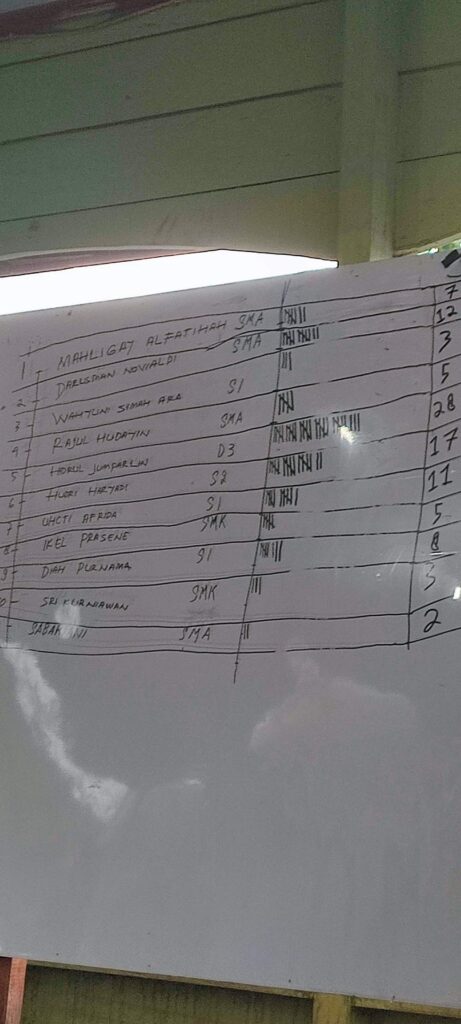 1 MAHLIGAY ALFATIHAH SMA 7
2 DARUSMAN NOVIALDI SMA 12
3 WAHYUNI SIMAH ARA S1 3
4 RAJUL HUDAYIN SMA 5
5 JUMPARLIN D3 28
6 HUDRI HARYADI S2 17
7 AFRIDA S1 11
8 IKEL PRASENE SMK 5
9 DIAH PURNAMA S1 8
SRI KURNIAWAN SMK 3
SMA 2